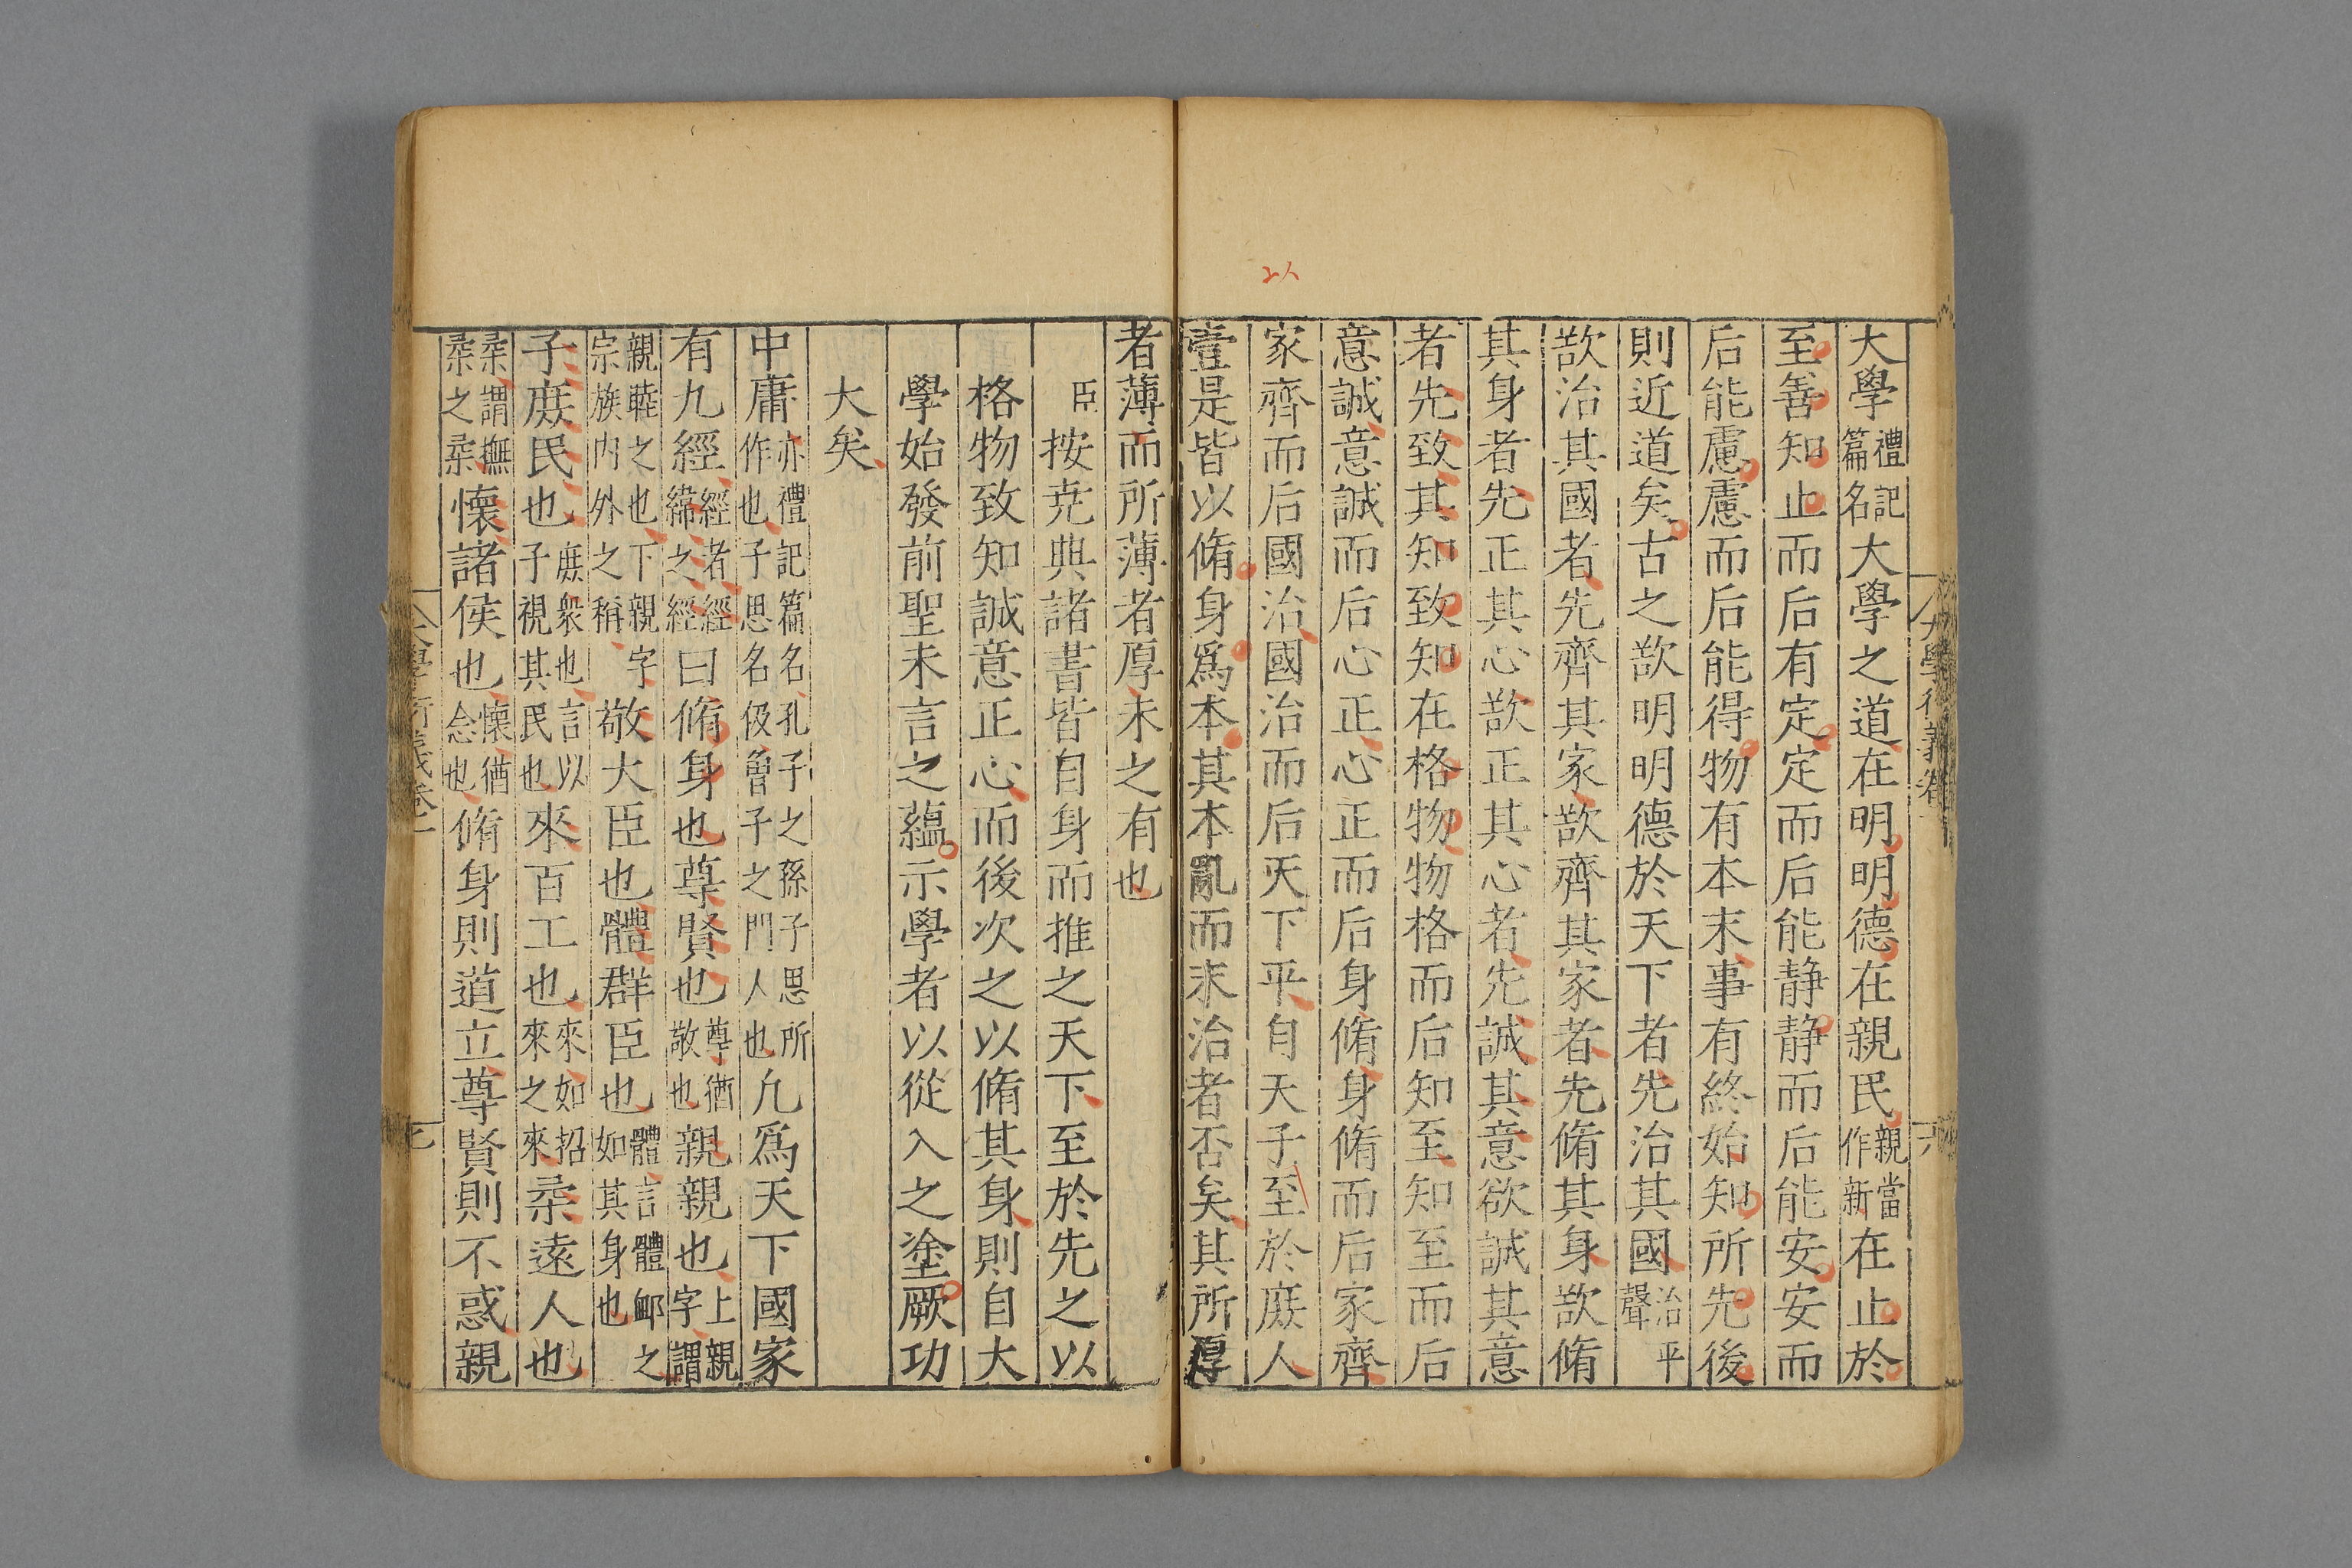 大學禮記篇名大學之道在明明德在親民親當作新在止於
至善知止而后有定定而后能静静而后能安安而
后能慮慮而后能得物有本末事有終始知所先後
則近道矣古之欲明明德於天下者先治其國治平聲
欲治其國者先齊其家欲齊其家者先脩其身欲脩
其身者先正其心欲正其心者先誠其意欲誠其意
者先致其知致知在格物物格而后知至知至而后
意誠意誠而后心正心正而后身脩身脩而后家齊
家齊而后國治國治而后天下平自天子至於庶人
以
壹是皆以脩身爲本其本亂而末治者否矣其所厚
者薄而所薄者厚未之有也
臣按堯典諸書皆自身而推之天下至於先之以
格物致知誠意正心而後次之以脩其身則自大
學始發前聖未言之蘊示學者以從入之塗厥功
大矣
中庸亦禮記篇名孔子之孫子思所作也子思名伋魯子之門人也凡爲天下國家
有九經經者經緯之經曰脩身也尊賢也尊猶敬也親親也上親字謂
親睦之也下親字宗族内外之稱敬大臣也體群臣也體言體卹之如其身也
子庶民也庶衆也言以子視其民也來百工也來如招來之來柔遠人也
柔謂撫柔之柔懷諸侯也懷猶念也脩身則道立尊賢則不惑親
大學衍義卷一
六
大學衍義卷一
七